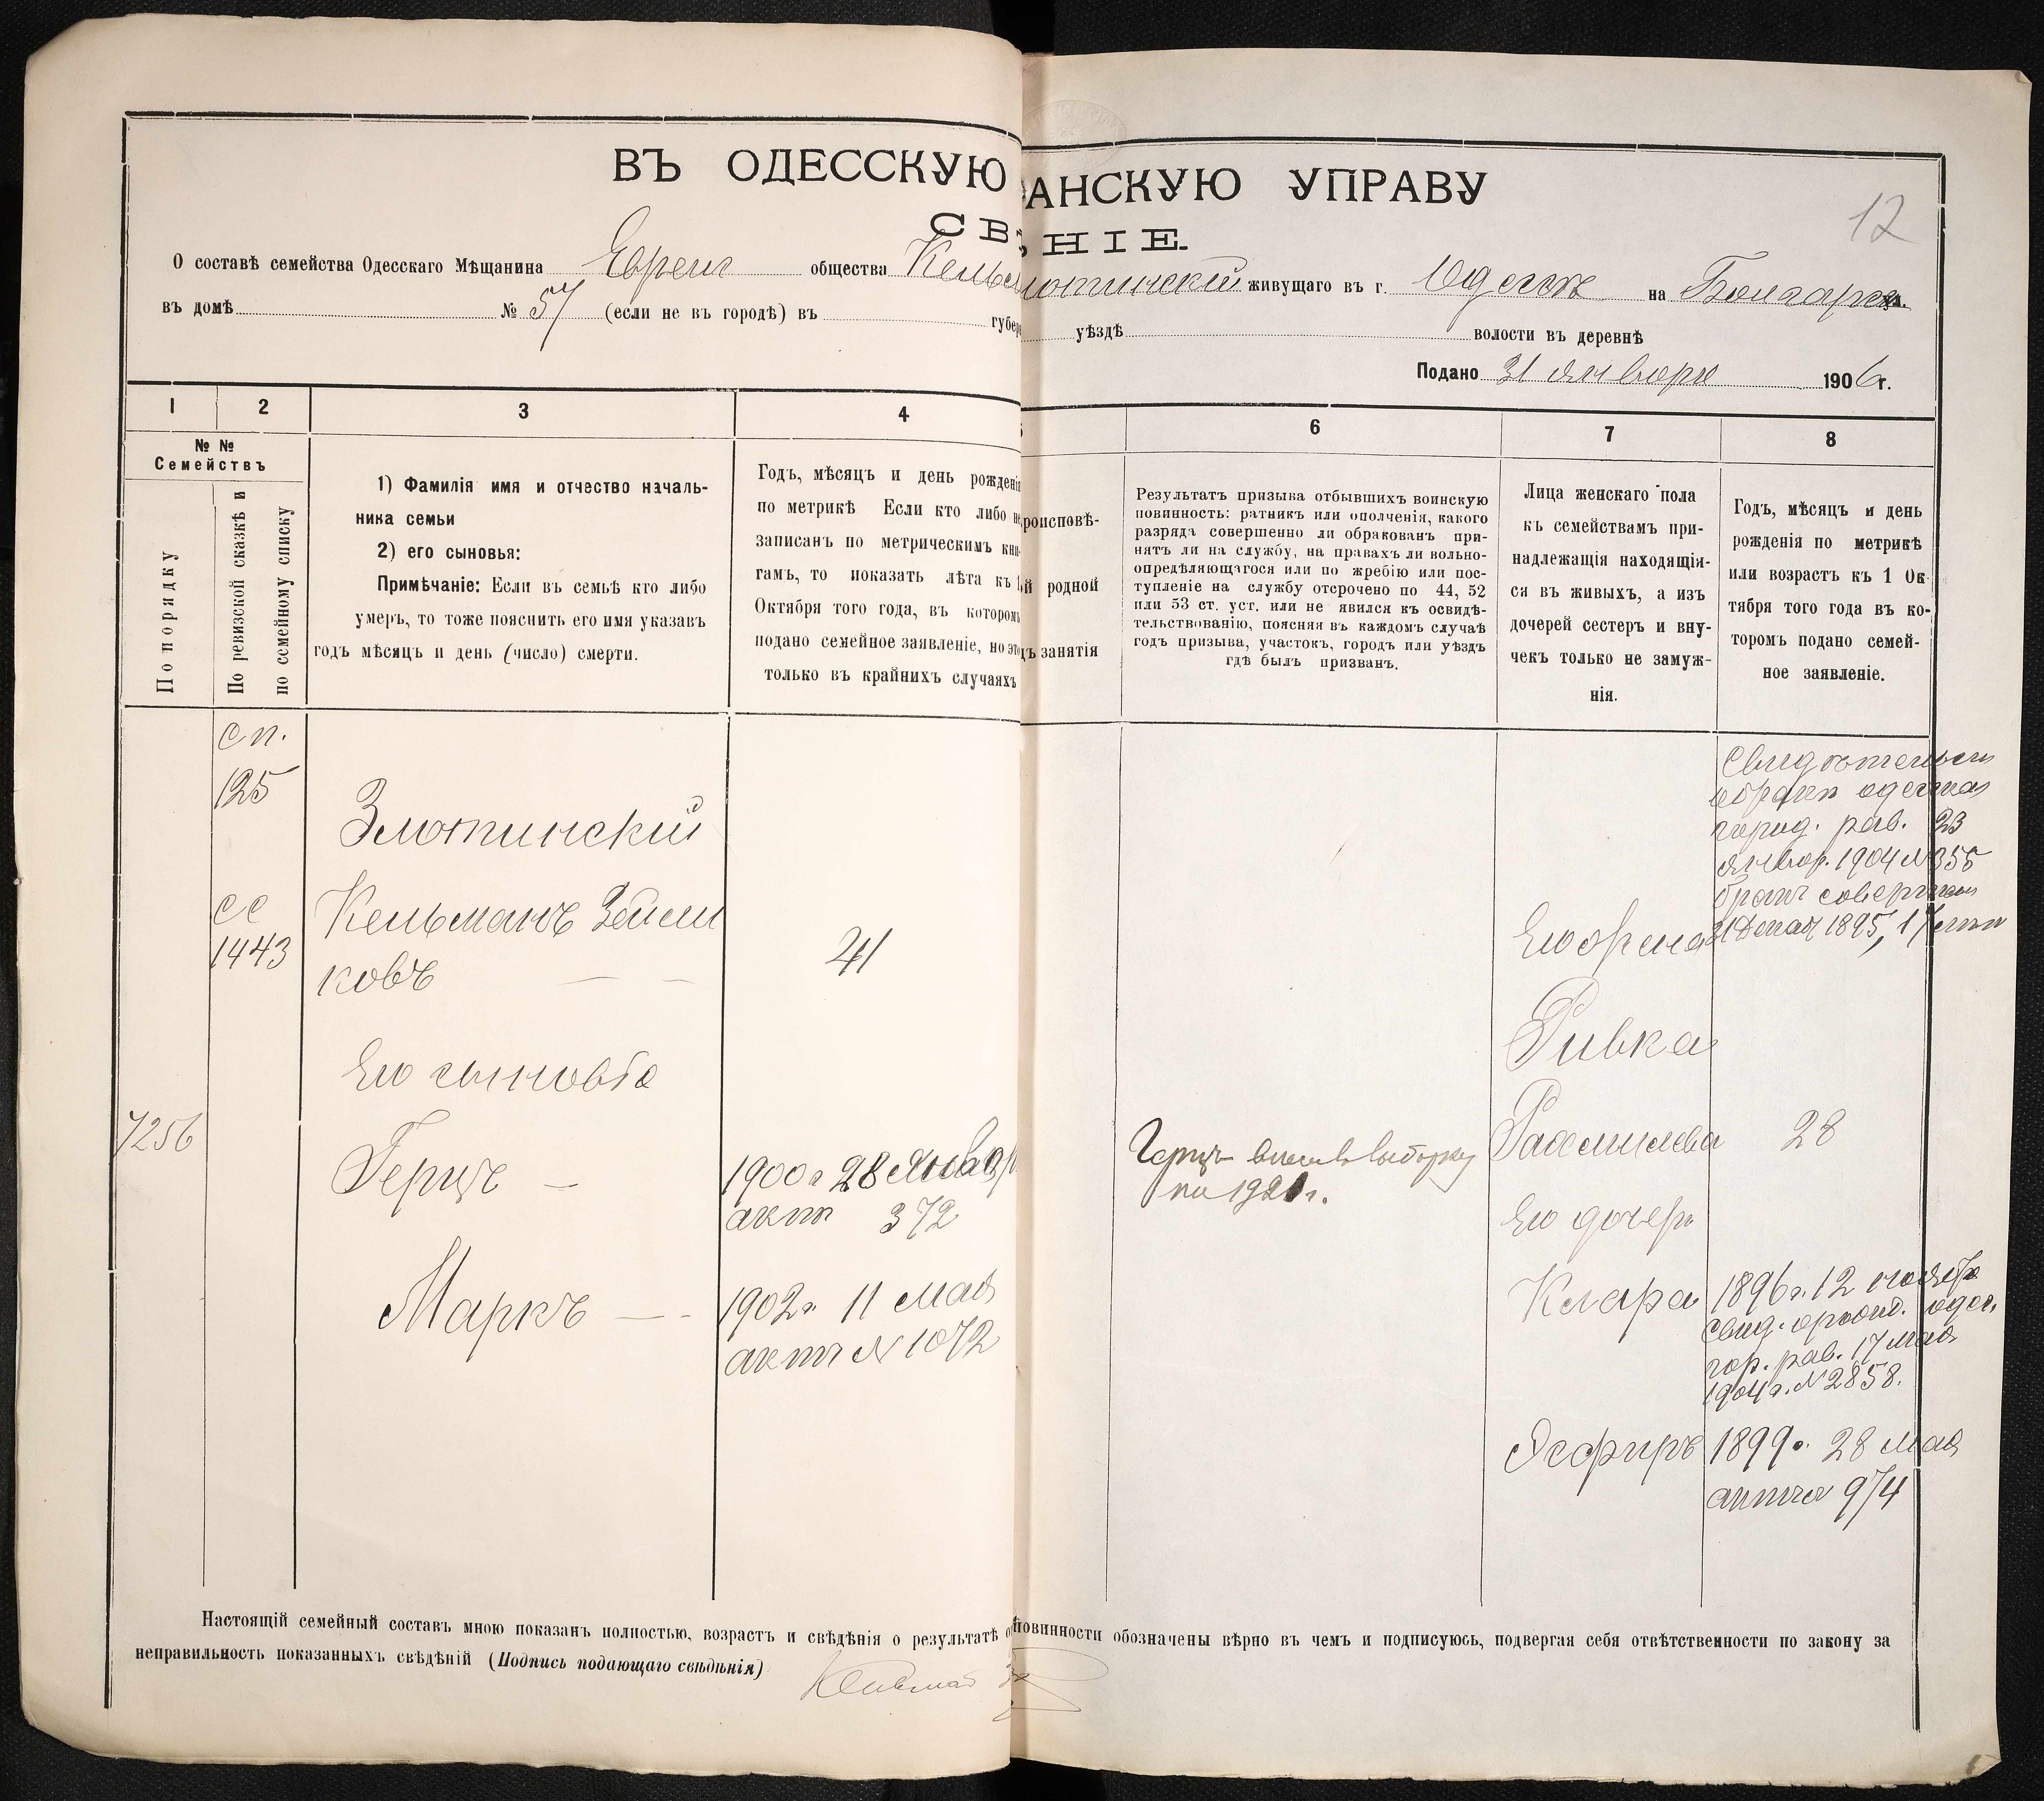 ВЪ ОДЕССКУЮ АНСКУЮ УПРАВУ
12
СВ НІЕ.
О составѣ семейства Одесскаго Мѣщанина Еврей общества Кельм лотинскій живущаго въ г. Одессѣ на Болгарск ул.
въ домѣ № 57 (если не въ городѣ) въ губер уѣздѣ волости въ деревнѣ
Подано 31 января 1906 г.
1 2 3 4 6 7 8
№ №
Семействъ
По порядку
По ревизской сказкѣ и
по семейному списку
1) Фамилія имя и отчество началь-
ника семьи
2) его сыновья:
Примѣчаніе: Если въ семьѣ кто либо
умеръ, то тоже пояснить его имя указавъ
годъ мѣсяцъ и день (число) смерти.
Годъ, мѣсяцъ и день рожденія
по метрикѣ Если кто либо не
записанъ по метрическимъ кни-
гамъ, то показать лѣта къ 1
Октября того года, въ которомъ
подано семейное заявленіе, но это
только въ крайнихъ случаяхъ
роисповѣ-
й родной
ъ занятія
Результатъ призыва отбывшихъ воинскую
повинность: ратникъ или ополченія, какого
разряда совершенно ли обракованъ при-
нятъ ли на службу, на правахъ ли вольно-
опредѣляющагося или по жребію или пос-
тупленіе на службу отсрочено по 44, 52
или 53 ст. уст. или не явился къ освидѣ-
тельствованію, поясняя въ каждомъ случаѣ
годъ призыва, участокъ, городъ или уѣздъ
гдѣ былъ призванъ.
Лица женскаго пола
къ семействамъ при-
надлежащія находящія-
ся въ живыхъ, а изъ
дочерей сестеръ и вну-
чекъ только не замуж-
нія.
Годъ, мѣсяцъ и день
рожденія по метрикѣ
или возрастъ къ 1 Ок-
тября того года въ ко-
торомъ подано семей-
ное заявленіе.
сп.
125
Злотинскій
сс
1443
Кельманъ Зейли
ковъ
41
Его сыновья
7256
Герцъ —
1900 г 28 Январ
актъ 372
Маркъ —
1902 г. 11 мая
актъ № 1072
Герцъ
на 1921 г.
Его жена
Ривка
Рахмилева
28
Свидѣтельст
о бракѣ одесскаго
город. рав. 23
январ. 1904 № 355
бракъ совершенъ
1895, 17
Его дочери
Клара
1896 г. 12 ноября
свид. одес.
гор. рав. 17 мая
1904 г. № 2858.
Эсфирь
1899 г. 28 мая
актъ 974
Настоящій семейный составъ мною показанъ полностью, возрастъ и свѣдѣнія о результатѣ о повинности обозначены вѣрно въ чемъ и подписуюсь, подвергая себя отвѣтственности по закону за
неправильность показанныхъ свѣдѣній (Подпись подающаго свѣдѣнія) Кельман